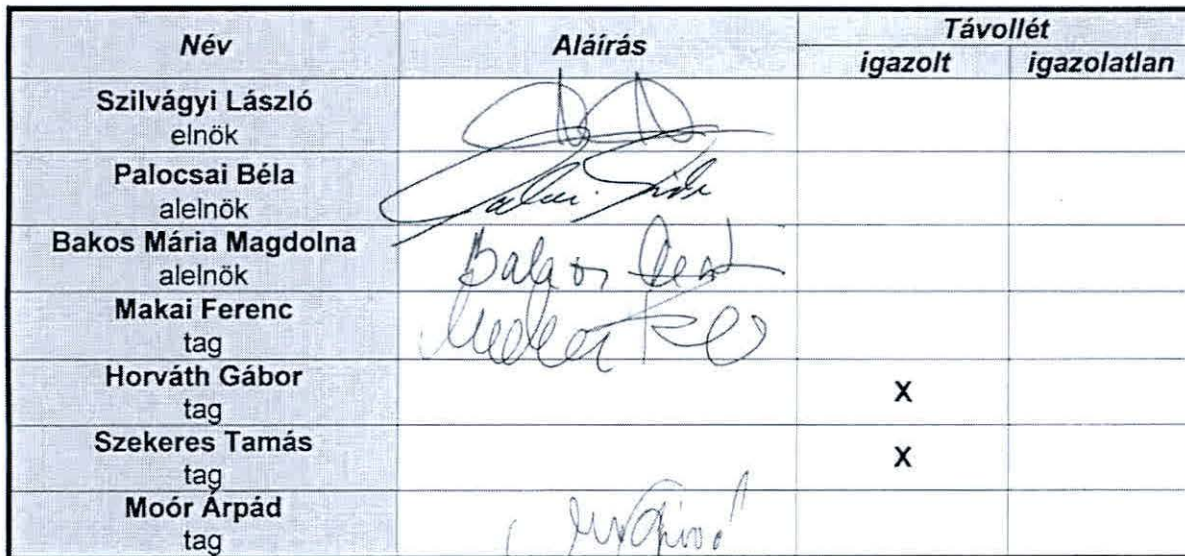 Név Aláírás Távollét
igazolt igazolatlan
Szilvágyi László
elnök
Palocsai Béla
alelnök
Bakos Mária Magdolna
alelnök
Makai Ferenc
tag
Horváth Gábor
tag X
Szekeres Tamás
tag X
Moór Árpád
tag